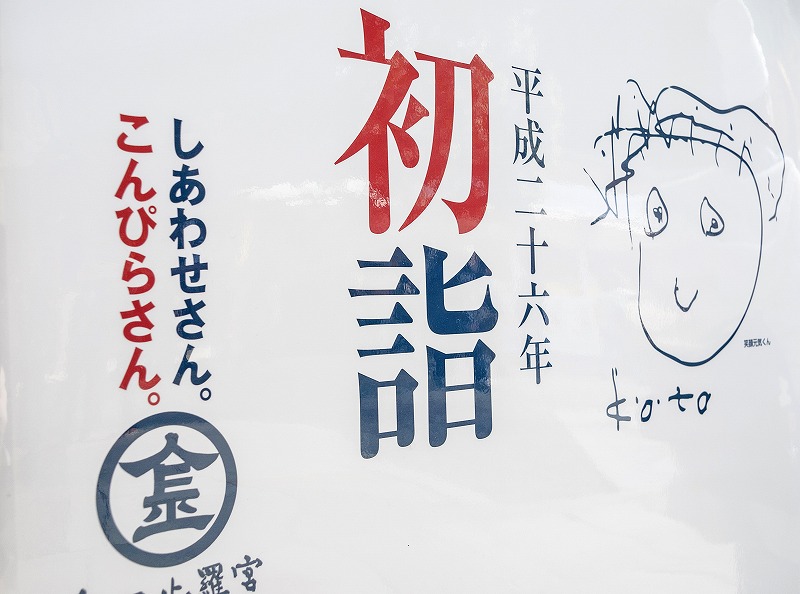 平成二十六年
初詣
しあわせさん。
こんぴらさん。
金
羅宮
笑顔元気くん
koto